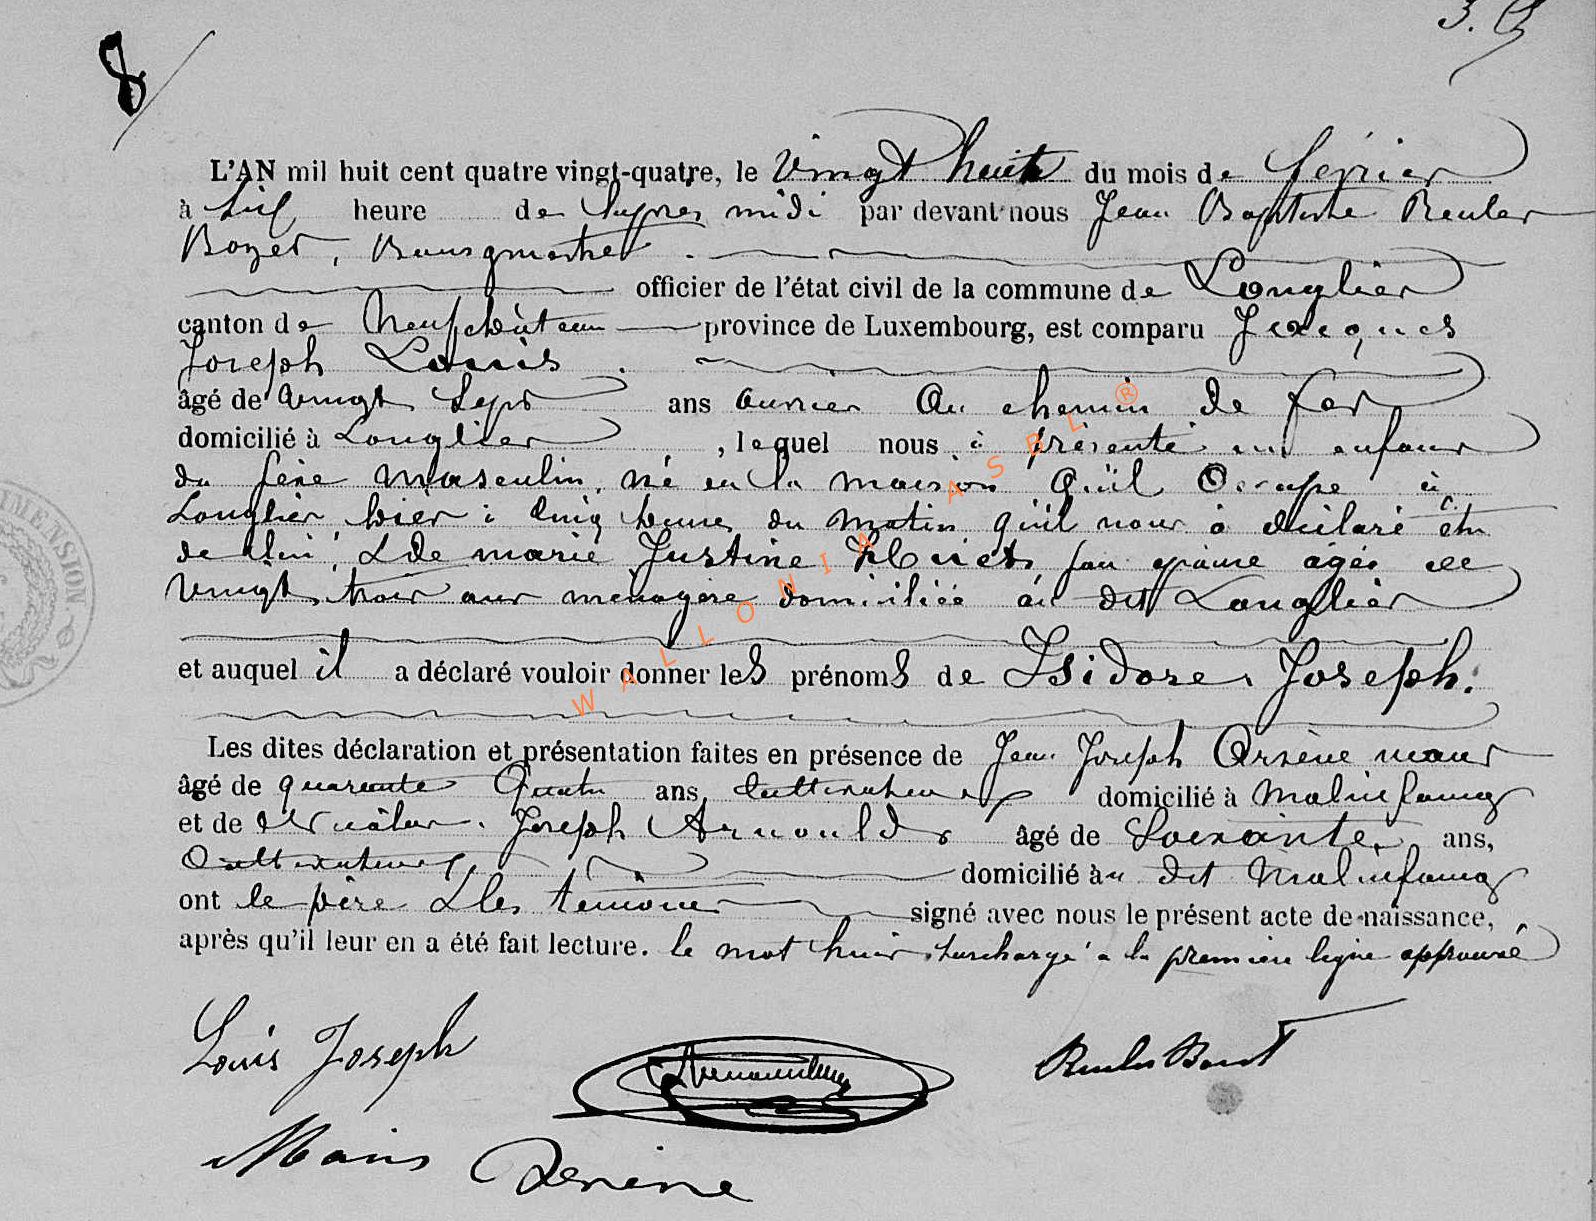 8
L'AN mil huit cent quatre vingt-quatre, le vingt huit du mois de février
à six heure de l'après midi par devant nous Jean Baptiste Reuler
Bozet, Bourgmestre
officier de l'état civil de la commune de Longlier
canton de Neufchâteau province de Luxembourg, est comparu Jacques
Joseph Louis
âgé de vingt sept ans ouvrier au chemin de fer
domicilié à Longlier, lequel nous à présenté un enfant
du sexe masculin, né en la maison qu'il occupe à
Longlier hier à cinq heures du matin qu'il nous à déclaré être
de lui, & de marie Justine Huet son épouse agée de
vingt trois ans ménagère domiciliée au dit Longlier
et auquel il a déclaré vouloir donner les prénoms de Isidore Joseph.
Les dites déclaration et présentation faites en présence de Jean Joseph Arsène
âgé de quarante quatre ans, cultivateur domicilié à Malinfaing
et de Nicolas Joseph Arnould âgé de soixante ans,
cultivateur, domicilié au dit Malinfaing
ont le père & les témoins signé avec nous le présent acte de naissance,
après qu'il leur en a été fait lecture. le mot huit surchargé à la première ligne approuvé
Louis Joseph
WALLONIA ASBL ®
IMENSION.